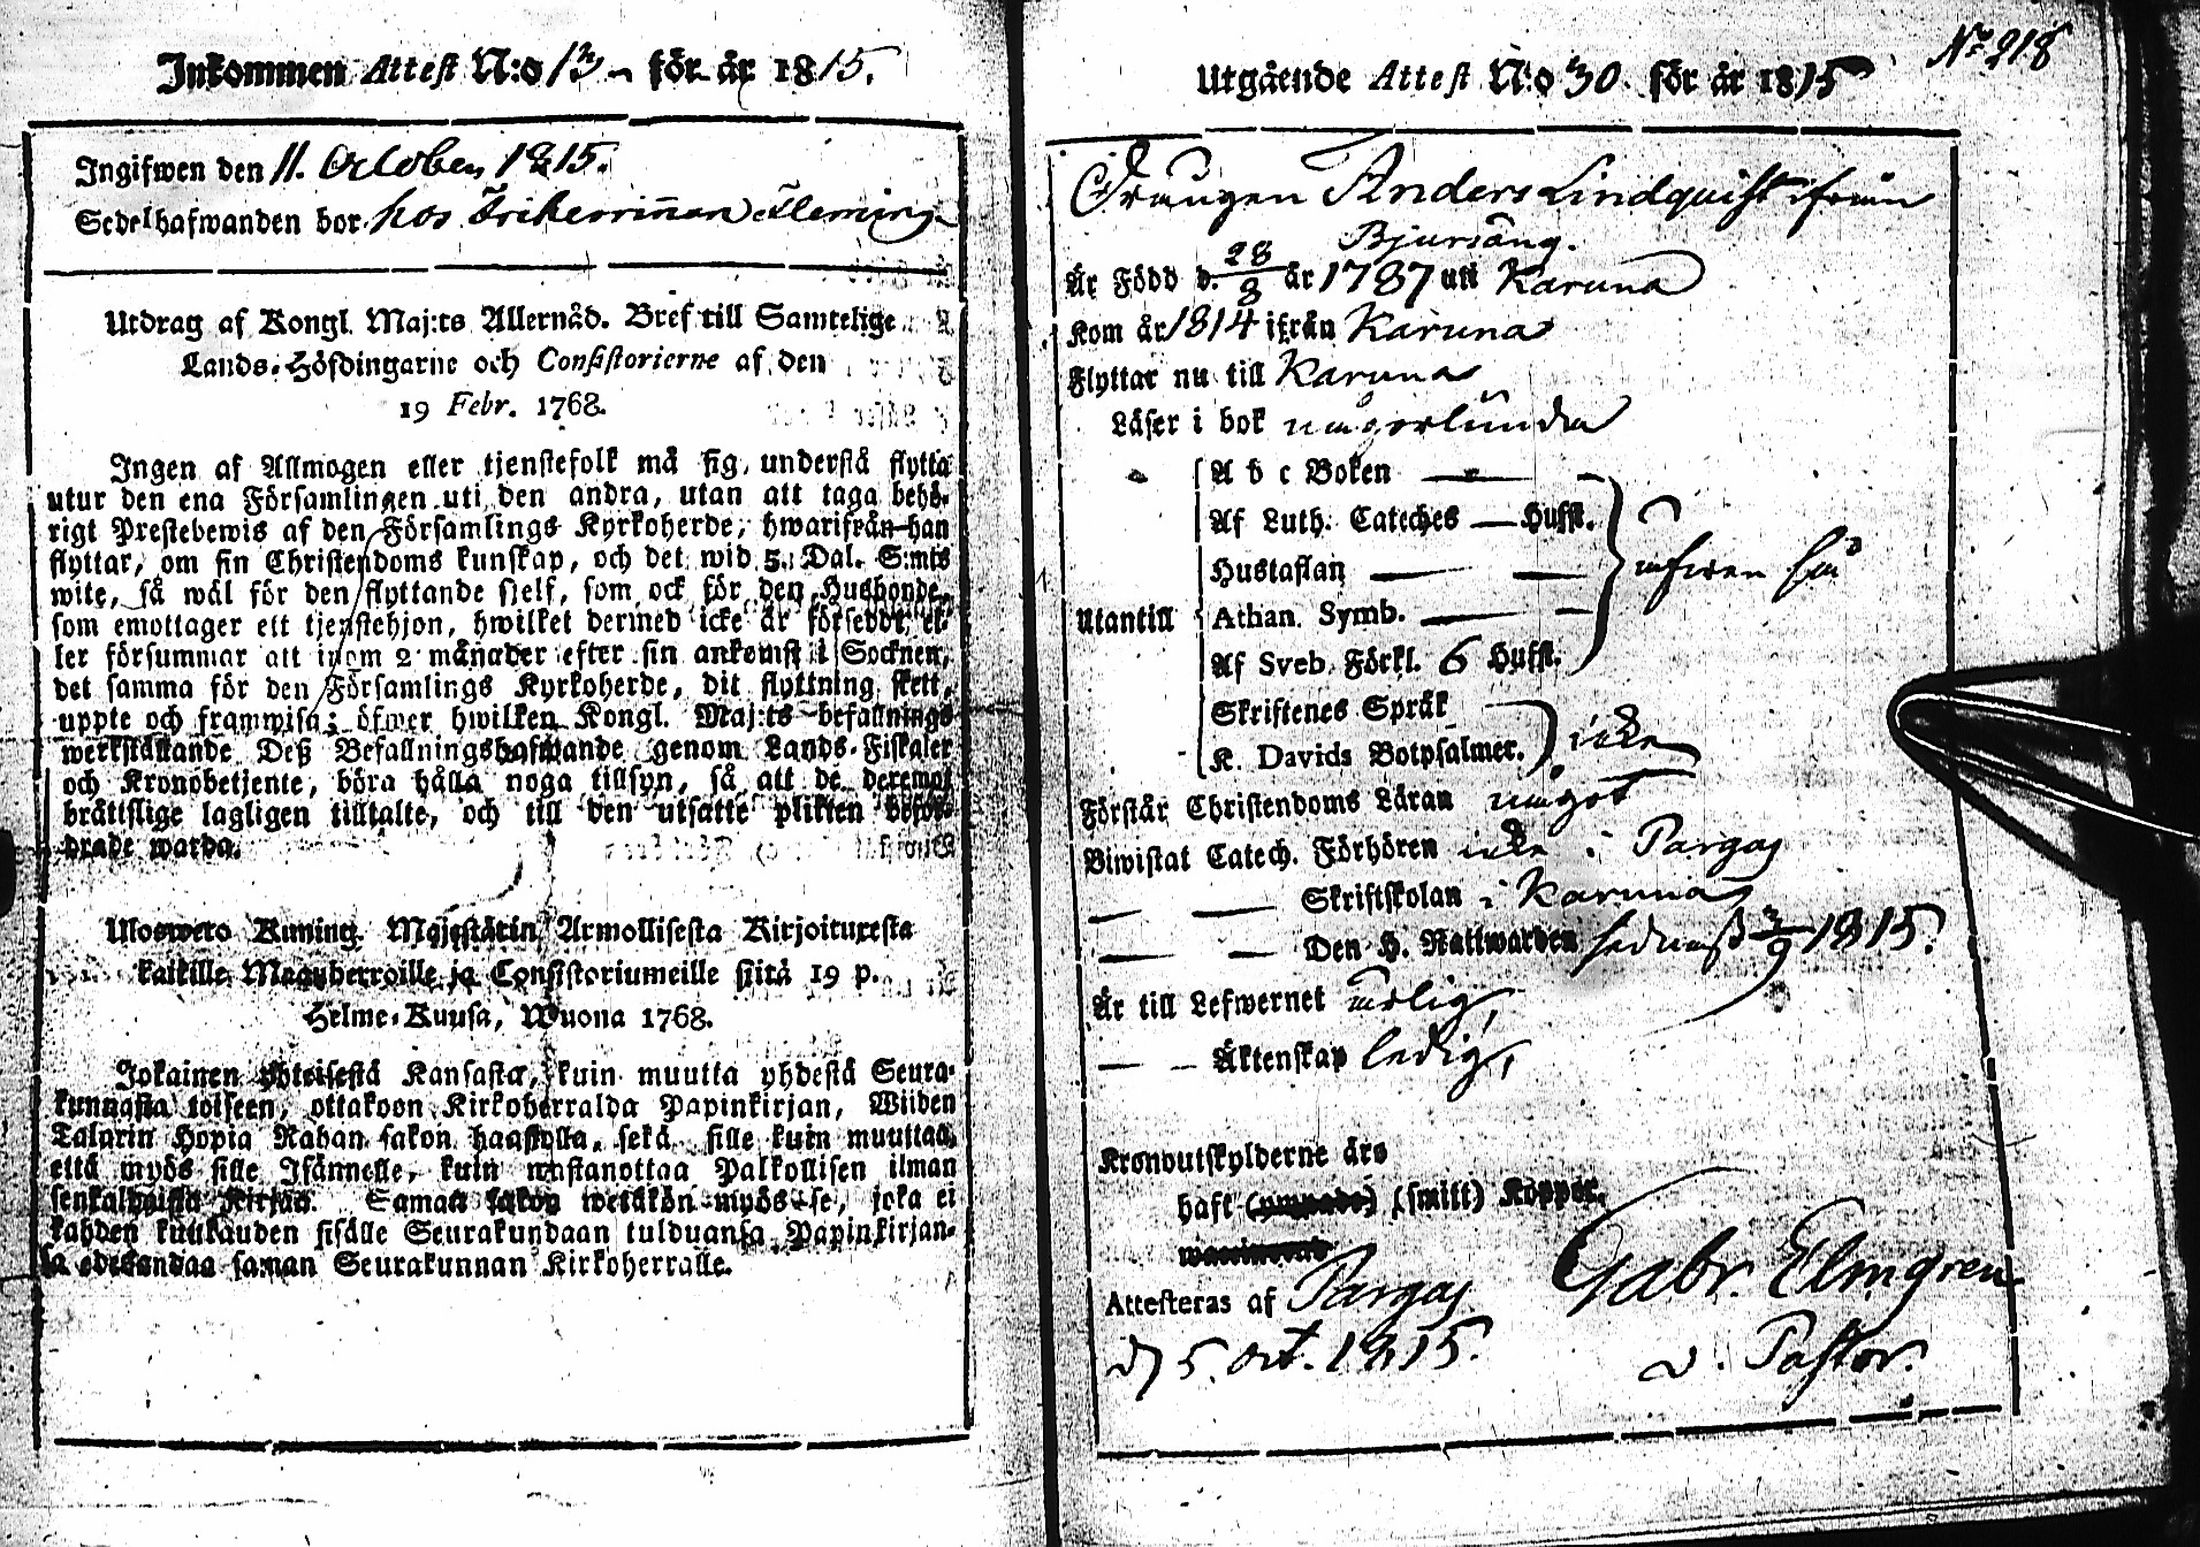 Inkommen Attest N:o 13 för år 1815.
Ingifwen den 11. October 1815.
Sedelhafwanden bor hos Friherrinnan Fleming
Utdrag af Kongl. Maj:ts Allernåd. Bref till Samtelige
Lands-Höfdingarne och Consistorierne af den
19 Febr. 1768.
Ingen af Allmogen eller tjenstefolk må sig understå flytta
utur den ena Församlingen uti den andra, utan att taga behö-
rigt Prestebewis af den Församlings Kyrkoherde, hwarifrån han
flyttar, om sin Christendoms kunskap, och det wid 5. Dal. S:mts
wite, så wäl för den flyttande sjelf, som ock för den Husbonde,
som emottager ett tjenstehjon, hwilket dermed icke är försedt, el-
ler försummar att inom 2 månader efter sin ankomst i Socknen,
det samma för den Församlings Kyrkoherde, dit flyttning skett,
uppte och framwisa; öfwer hwilken Kongl. Maj:ts befallnings
werkställande Deß Befallningshafwande genom Lands-Fiskaler
och Kronobetjente, böra hålla noga tillsyn, så att de deremot
bråttslige lagligen tilltalte, och till den utsatte plikten befor-
drade warda.
Uloswero Kuning. Majestätin Armollisesta Kirjoituxesta
kaikille Maanherroille ja Consistoriumeille siitä 19 p.
Helme-Kuusa, Wuona 1768.
Jokainen yhteisestä Kansasta, kuin muutta yhdestä Seura-
kunnasta toiseen, ottakoon Kirkoherralda Papinkirjan, Wiiden
Talarin Hopia Rahan sakon haastolla, sekä sille kuin muuttaa,
että myös sille Isännelle, kuin wastanottaa Palkollisen ilman
senkaldaista Kirjaa. Saman sakon wetäkön myös se, joka ei
kahden kuukauden sisälle Seurakundaan tulduansa Papinkirjan-
sa edesandaa saman Seurakunnan Kirkoherralle.
N:o 218
Utgående Attest N:o 30. för år 1815
Drängen Anders Lindquist ifrån
Bjursäng.
Är Född d. 28/8 år 1787 uti Karuna
Kom år 1814 ifrån Karuna
Flyttar nu till Karuna
Läser i bok någorlunda
A b c Boken
Af Luth. Cateches — Hufst.
Hustaflan
äfwen så
Utantill Athan. Symb.
Af Sveb. Förkl. 6 Hufst.
Skriftenes Språk
K. Davids Botpsalmer. icke
Förstår Christendoms Läran något
Biwistat Catech. Förhören icke i Pargas
Skriftskolan i Karuna
Den H. Nattwarden sednast 3/9 1815.
Är till Lefwernet ärlig,
Äktenskap ledig,
Kronoutskylderne äro
haft (ympade) (smitt) Koppor.
Attesteras af Pargas Gabr. Elmgren
d 5. Oct. 1815. v. Pastor.